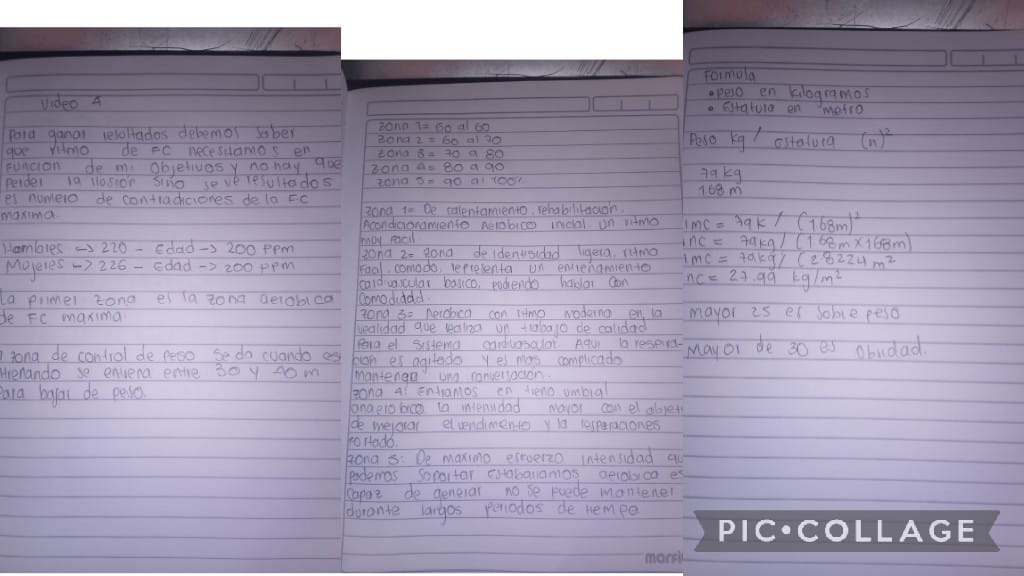 Video 4
Para ganar resultados debemos saber
que ritmo de FC necesitamos en
funcion de mi objetivos y no hay que
perder la ilusión sino se ve resultados
es numero de contradiciones de la FC
maxima.
Hombres -> 220 - Edad -> 200 PPM
Mujeres -> 226 - Edad -> 200 PPM
La primer zona es la zona aerobica
de FC maxima.
zona de control de peso se da cuando es
ntrenando se entrena entre 30 y 40 m
para bajar de peso.
Zona 1= 50 al 60
Zona 2 = 60 al 70
Zona 3 = 70 a 80
Zona 4 = 80 a 90
Zona 5 = 90 al 100%
Zona 1= De calentamiento, rehabilitación,
Acondicionamiento Aerobico inicial un ritmo
muy facil
Zona 2= zona de identsidad ligera, ritmo
Facil, comodo, representa un entrenamiento
cardivascular basico, podiendo hablar con
comodidad.
Zona 3= Aerobica con ritmo moderna en la
realidad que realiza un trabajo de calidad
Para el sistema cardivascular. Aqui la respira-
cion es agitado y es mas complicado
mantenga una conversacion.
Zona 4: Entramos en umbral
anaerobico la intensidad mayor con el objeti
de mejorar el rendimiento y la respiraciones
Zona 5: De maximo esfuerzo intensidad qu
podemos soportar estabariamos aerobica es
capaz de generar no se puede mantener
durante largos periodos de tiempo
marfil
Formula
• peso en kilogramos
• Estatura en metro
Peso kg / estatura (n)²
79 kg
168 m
imc = 79k / (168m)²
inc = 79kg / (168m x 168m)
imc = 79kg / (28224 m²
nc = 27.99 kg/m²
mayor 25 es sobre peso
Mayor de 30 es obsidad.
PIC•COLLAGE